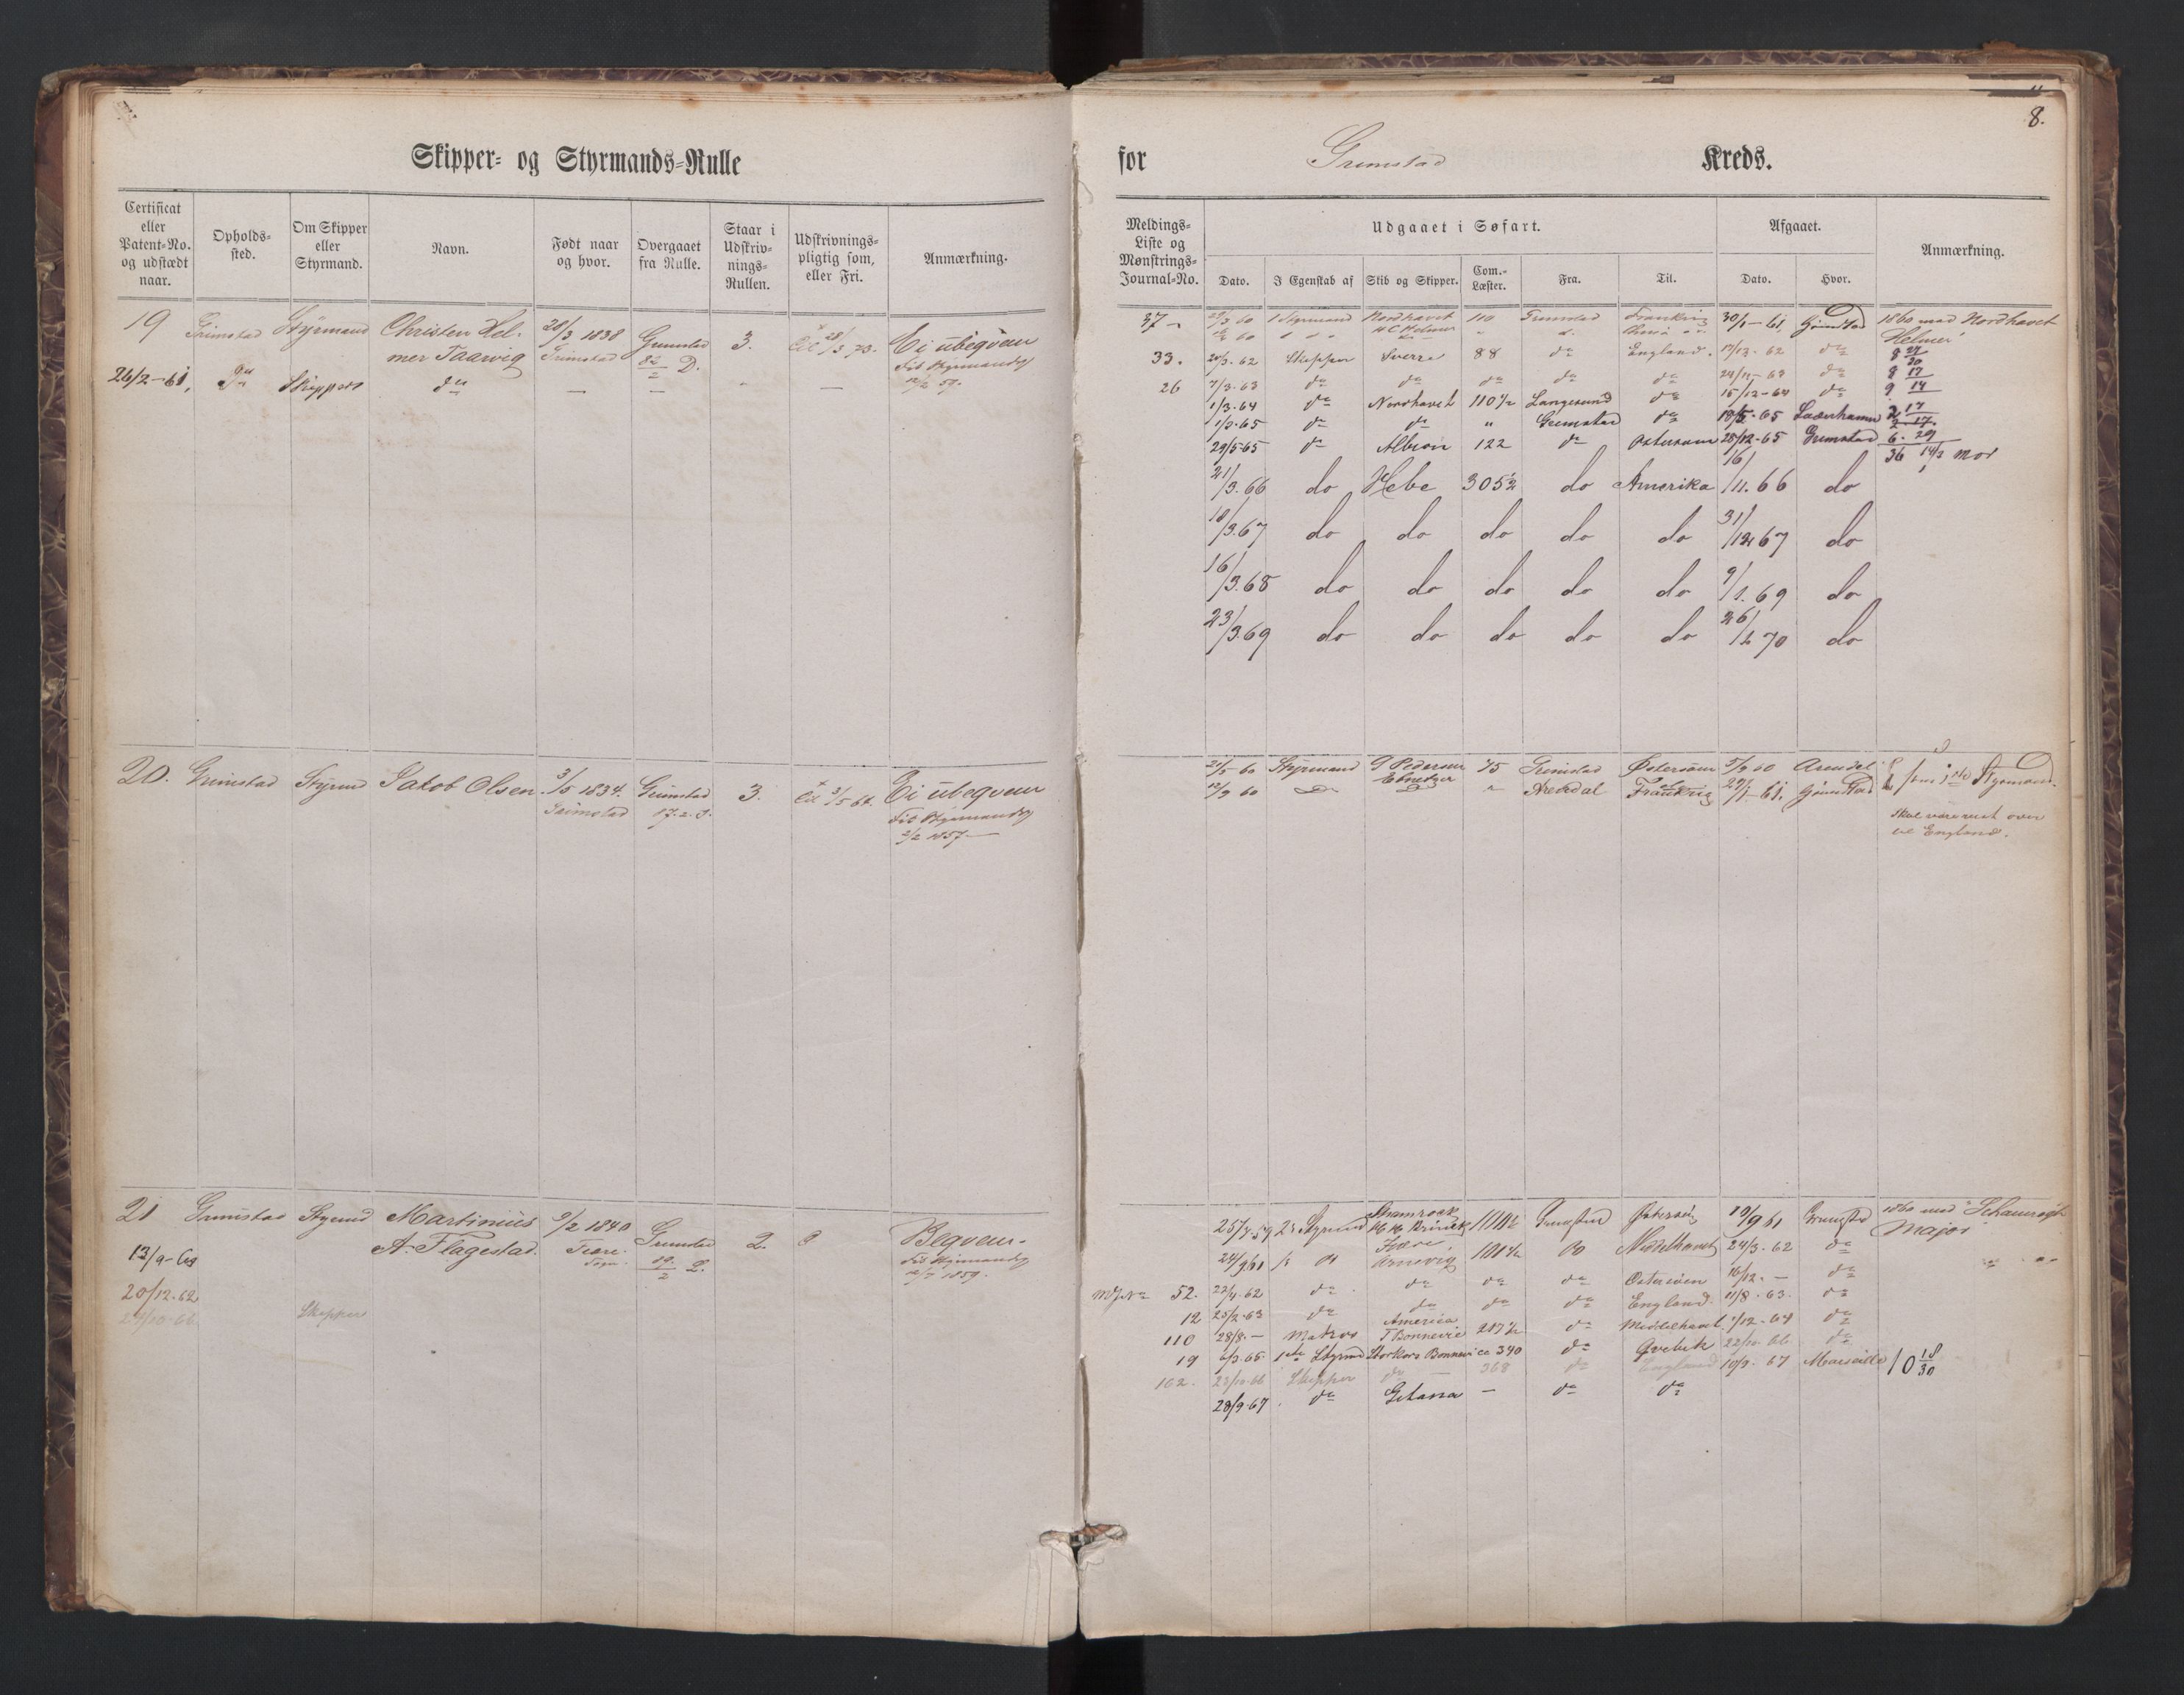 8.
Skipper- og Styrmands-Rulle for Grimstad Kreds.
Certificat eller Patent-No. og udstædt naar.
Opholds-sted.
Om Skipper eller Styrmand.
Navn.
Født naar og hvor.
Overgaaet fra Rulle.
Staar i Udskriv-nings-Rullen.
Udskrivnings-pligtig som, eller Fri.
Anmærkning.
Meldings-Liste og Mønstrings-Journal-No.
Udgaaet i Søfart.
Dato. I Egenskab af Skib og Skipper. Com.-Læster. Fra. Til.
Afgaaet.
Dato. Hvor.
Anmærkning.
19 Grimstad Styrmand Christen Hel-
mer Taarvig
28/3 1838
Grimstad
Grimstad
82/2 D.
3.
28/3 73.
Ei ubeqvem
til Styrmand
26/2-61. do Skipper do — —
37 Styrmand Nordhavet 110 Grimstad Frankrig 30/1-61. Grimstad 1860 med Nordhavet
Helmer
33. 20/3.62 Skipper Sverre 88 do England. 62 do
26 7/3.63 do do do do do 24/11-63 do 8 17
1/3.64 do Nordhavet 110½ Langesund do 15/12-64 do 9 14
1/3.65 do do " Grimstad do 18/5.65 2 17
29/5-65 do Albion 122 do Østersøen 28/12-65 Grimstad 6. 29
36 14/2 mdr
21/3.66 do Hebe 305½ do Amerika 16/11.66 do
18/3.67 do do do do do 31/12 67 do
16/3.68 do do do do do 9/1.69 do
23/3.69 do do do do do 26/2 70 do
20. Grimstad Styrmd Jakob Olsen 3/5 1834.
Grimstad
Grimstad
17.2.D.
3.
3/5 64.
Ei ubeqvem
til Styrmand
2/2 1857
21/5 60 Styrmand G Pedersen
Ebenetzer
75 Grimstad Østersøen 5/9 60 Arendal
12/9 60 do do " Arendal Frankrig 29/1-61. Grimstad
som 1ste Styrmand.
Skal være reist over
til England.
21 Grimstad Styrmd Martinius
A. Flagestad.
9/2 1840
Grimstad
19/2 D.
2.
Beqvem.
til Styrmand
1859.
13/9-60
20/12.62
24/10-66 Skipper
25/7.59 2de Styrmd Shamrock 101½ Grimstad Østersøen 19/9 61 Grimstad 1860 med Schamrogh
Major
24/9 61 Arnevig 101½ Do Middelhavet 24/3.62 do
52. 22/4.62 do do do do Østersøen 16/12.— do
12 25/2-63 do do do do England. 11/8.63. do
110 28/8.— Matros America
T Bonnevie
217½ do Middelhavet /12.64 do
19 6/3.65. 1ste Styrmd Storkors Bonnevie ca 340 do Qvebek 22/10.66 do
162. 23/10.66 Skipper do 368 do England 10/9.67 Marseille 10 18/30
28/9.67 do Gitana — do do